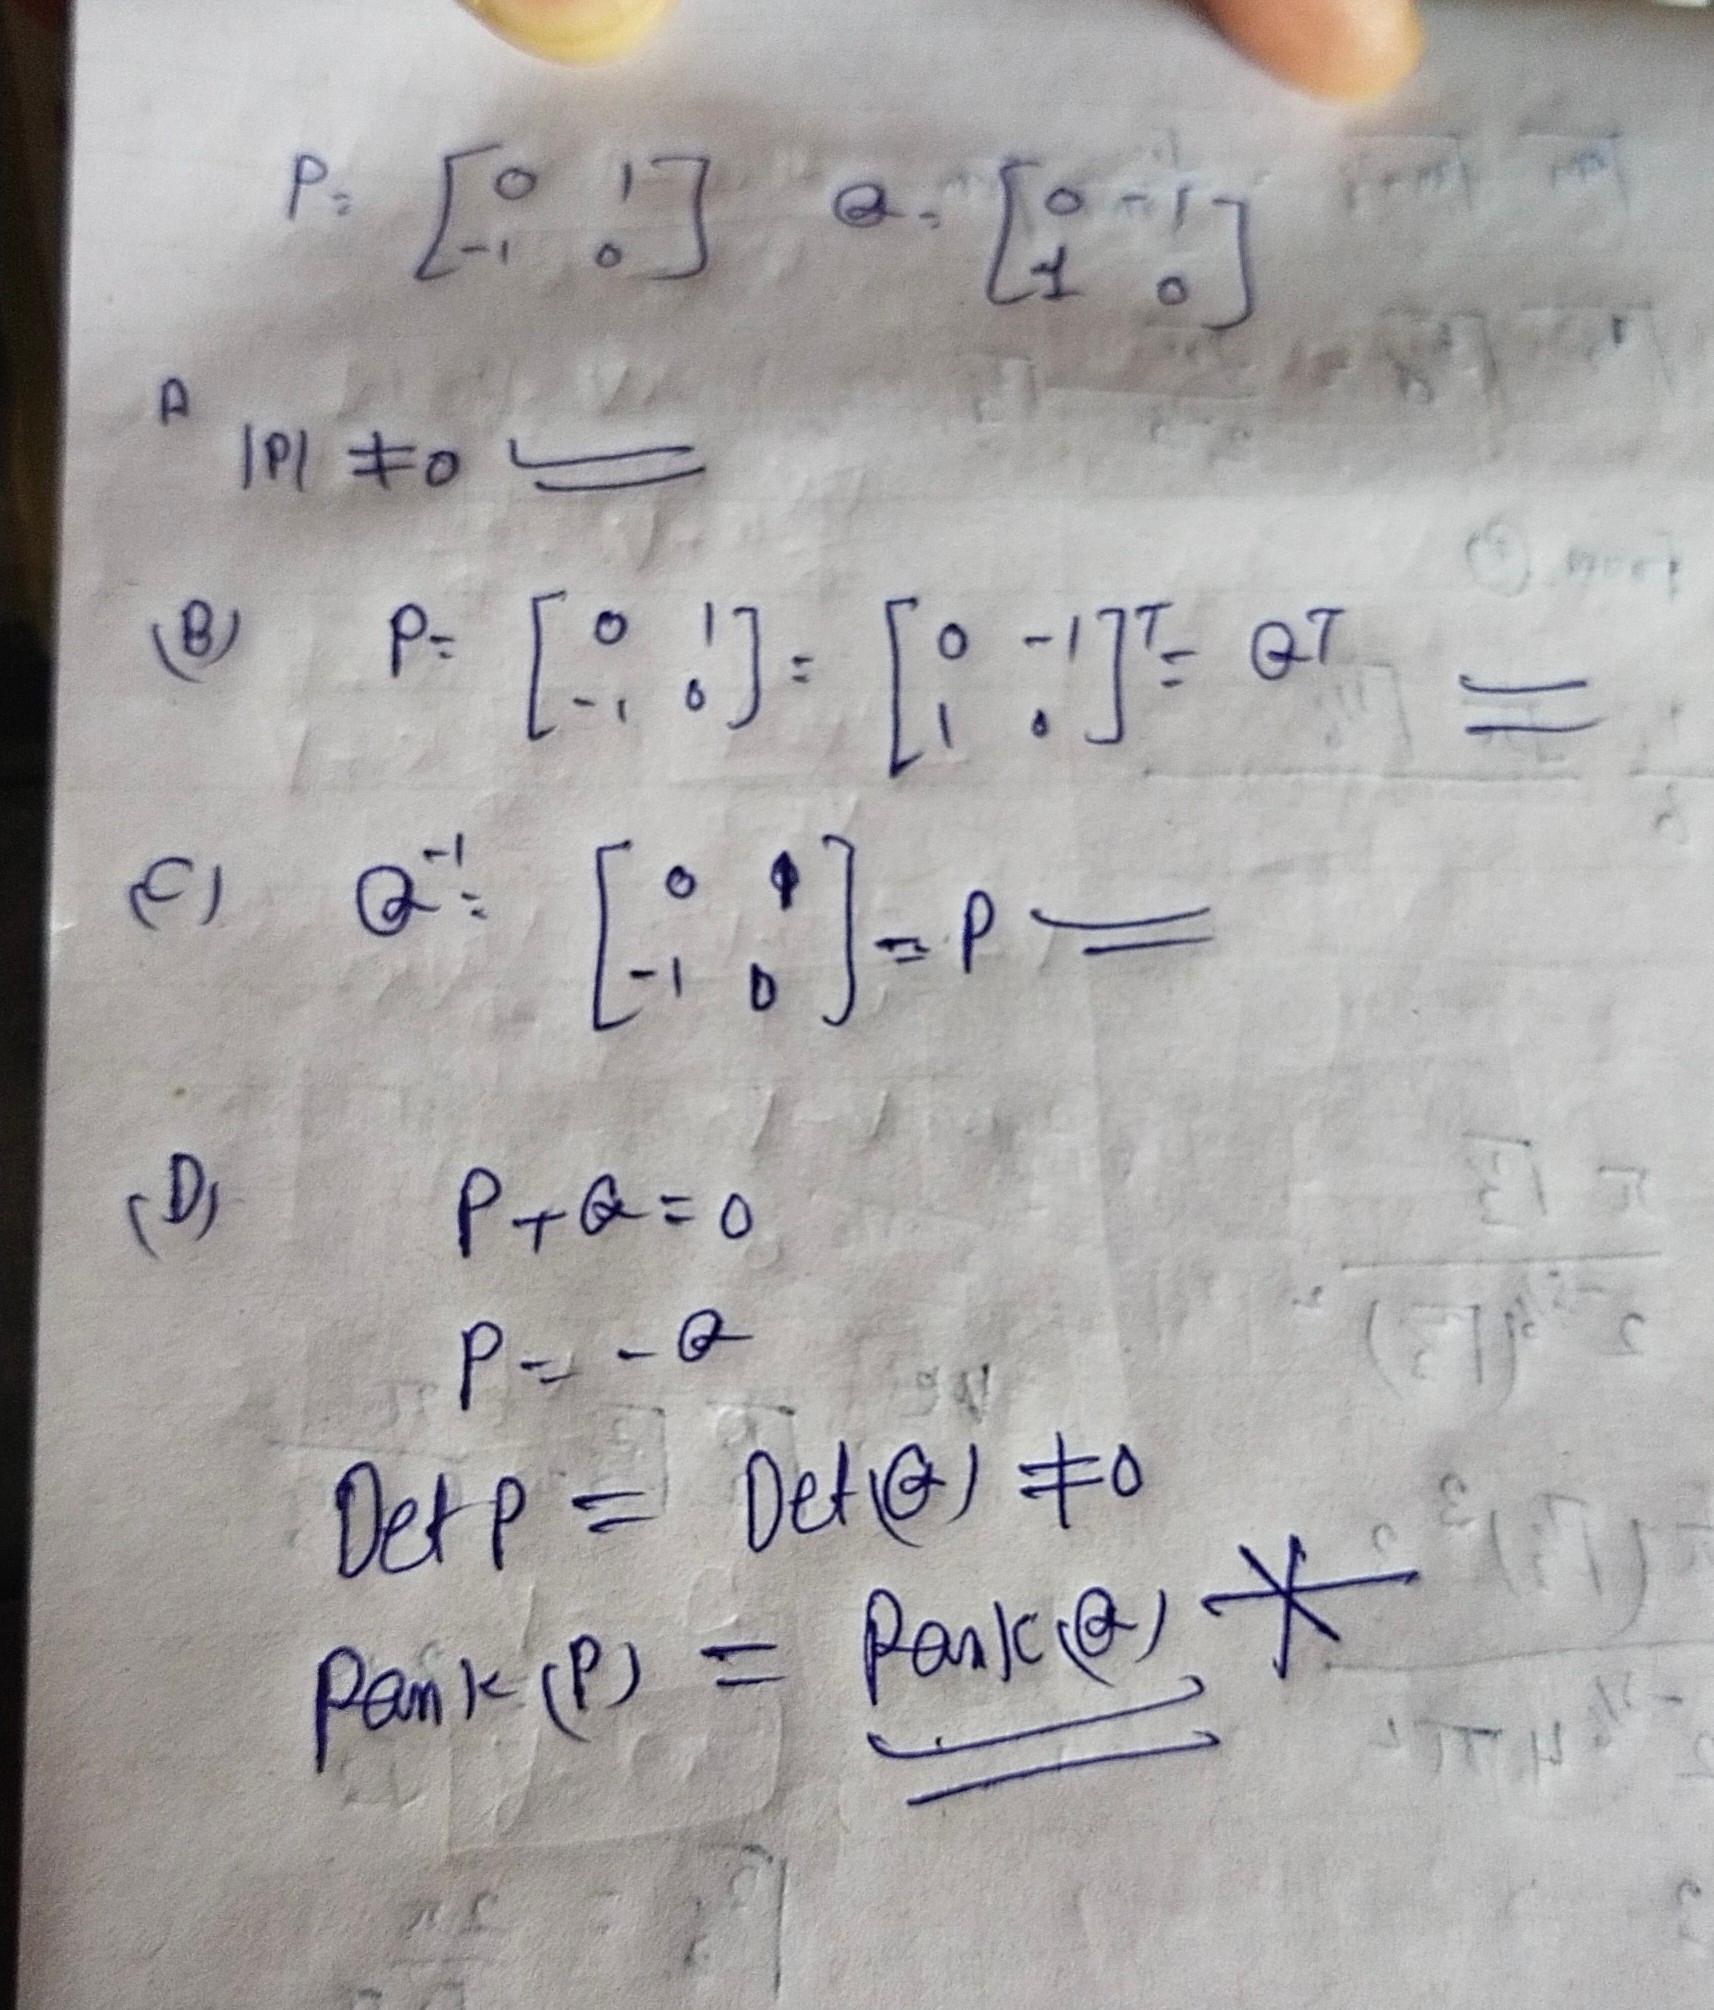 P= [0 1 -1 0] Q= [0 -1 1 0]
A
|P| ≠0
(B) P= [0 1 -1 0] = [0 -1 1 0]ᵀ = Qᵀ
(C) Q⁻¹= [0 1 -1 0] = P
(D) P+Q=0
P= -Q
Det P = Det(Q) ≠0
Rank(P) = Rank(Q)